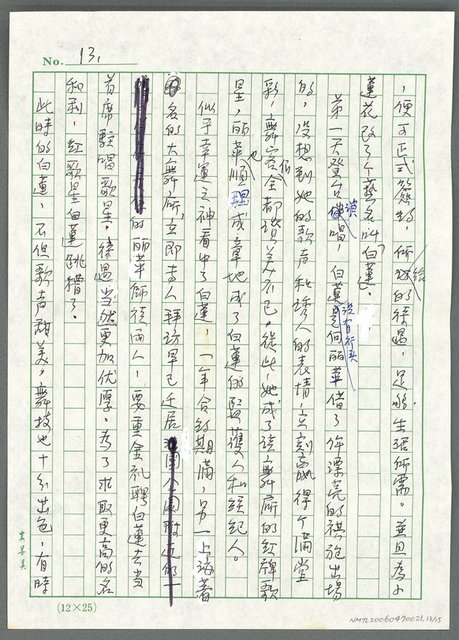 No. 13.
，便可正式簽約，給她的待遇，足夠生活所需。並且為小
蓮花改了个藝名叫“白蓮”。
第一天登台演唱，白蓮沒有行头是向丽華借了件漂亮的旗袍出場
的，沒想到她的歌声和誘人的表情，立刻贏得个滿堂
彩，舞客們全都讚美不已。從此，她成了該舞厛的紅牌歌
星，丽華也順理成章地成了白蓮的監護人和經紀人。
似乎幸運之神看中了白蓮，一年合約期滿，另一上海著
名的大舞厛，立即专人拜訪早已迁居
的丽華師徒兩人，要重金礼聘白蓮去当
首席駐唱歌星，待遇当然更加优厚。為了求取更高的名
和利，紅歌星白蓮跳槽了。
此時的白蓮，不但歌声甜美，舞技也十分出色，有時
(12×25)